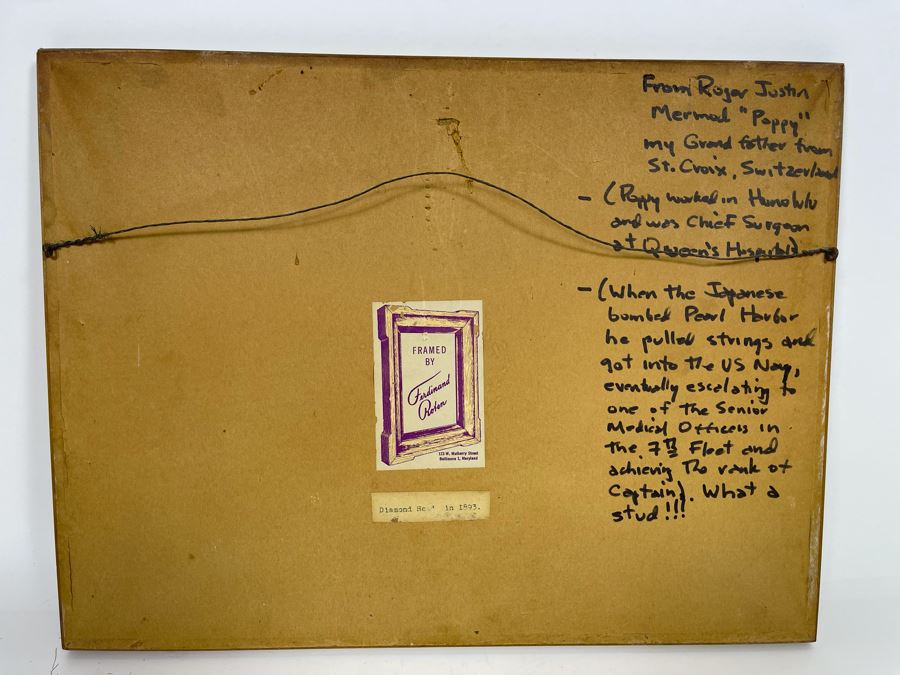 From Roger Justin
Mermod "Poppy"
my Grand father from
St. Croix, Switzerland
- (Poppy worked in Honolulu
and was Chief Surgeon
at Qween's Hospital)
- (When the Japanese
bombed Pearl Harbor
he pulled strings and
got into the US Navy,
eventually escalating to
one of the Senior
Medical Officers in
the 7th Fleet and
achieving the rank of
Captain). What a
stud!!!
FRAMED
BY
Ferdinand
Roten
123 W. Mulberry Street
Baltimore 1, Maryland
Diamond in 1893.